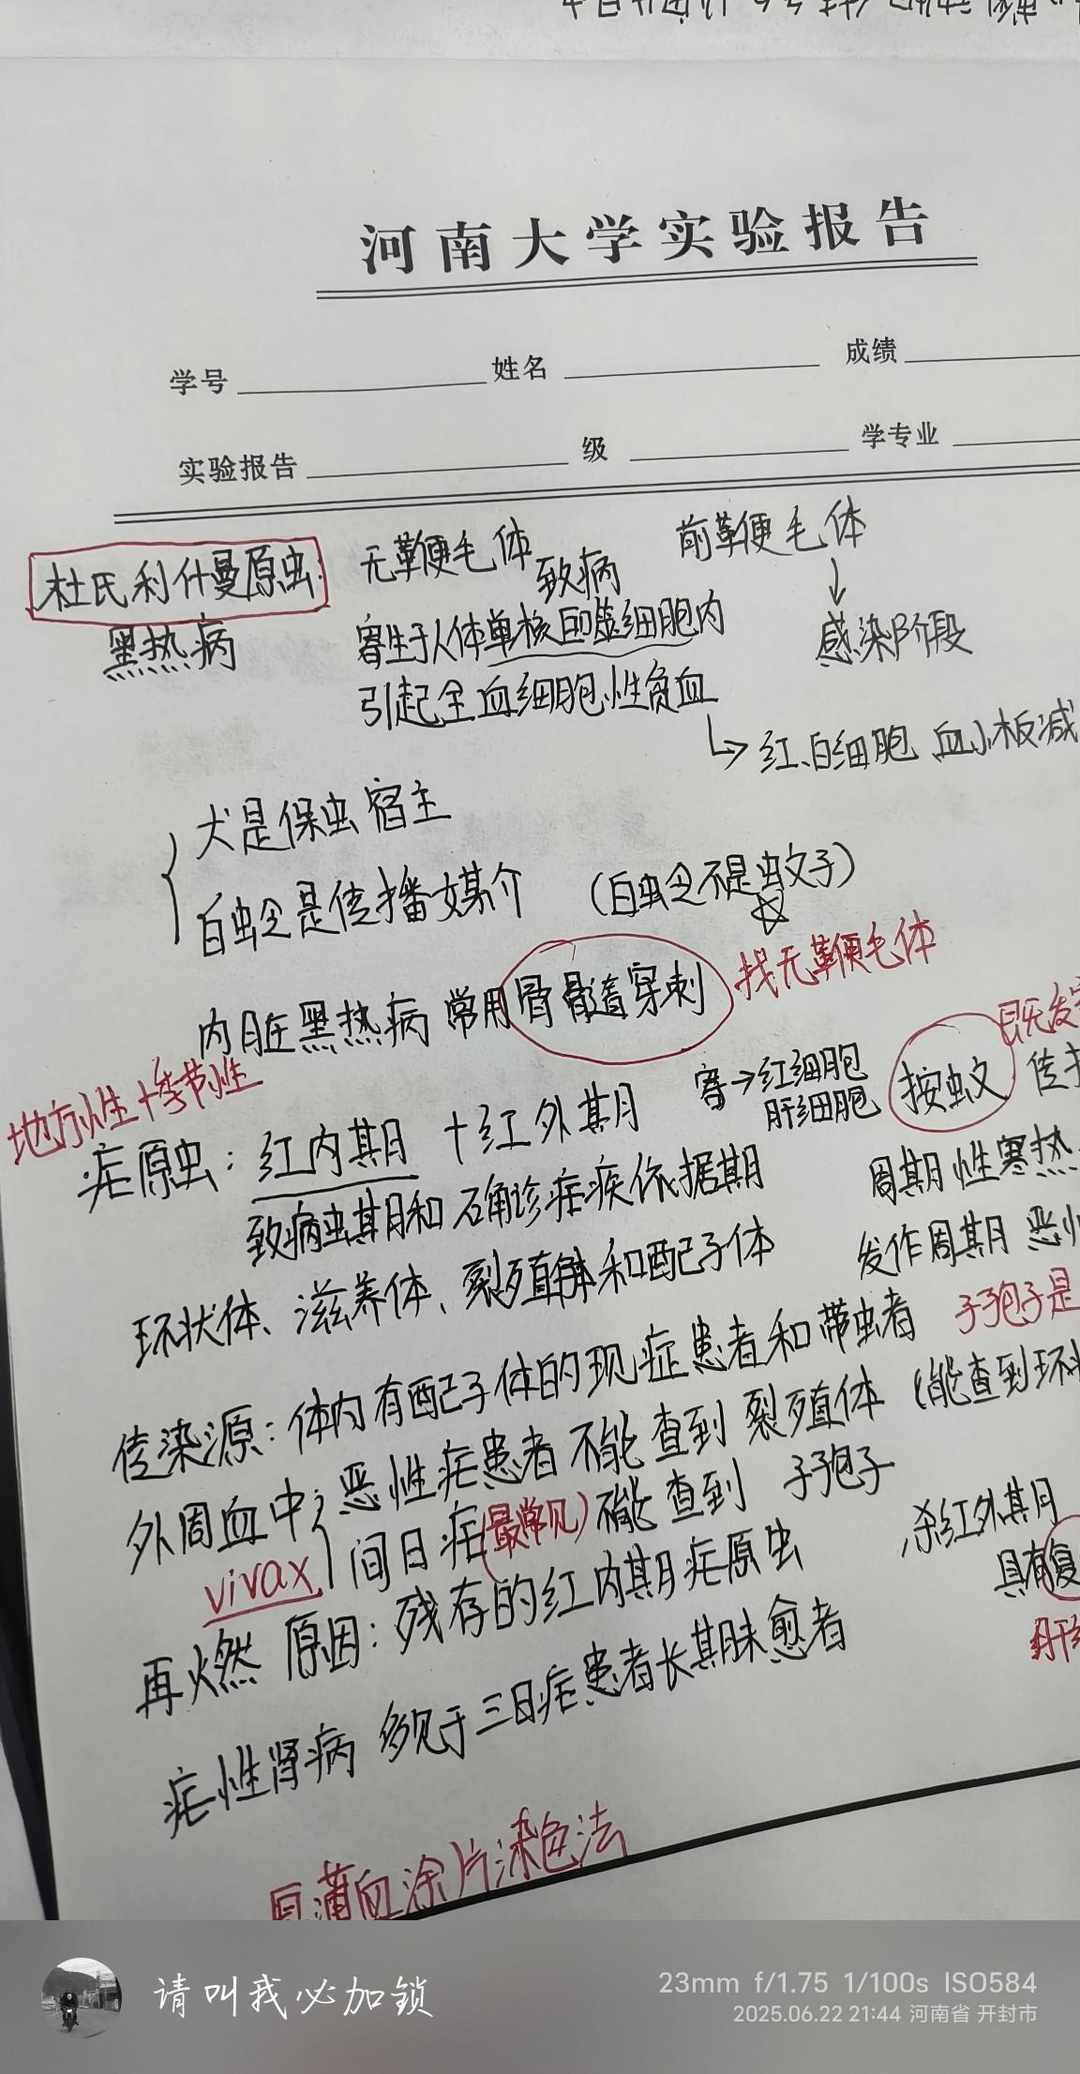 河南大学实验报告
学号 姓名 成绩
实验报告 级 学专业
杜氏利什曼原虫 无鞭毛体 前鞭毛体
致病
黑热病 寄生于人体单核巨噬细胞内 感染阶段
引起全血细胞性贫血
↳ 红、白细胞 血小板减
犬是保虫宿主
白蛉是传播媒介 (白蛉不是蚊子)
内脏黑热病 常用骨髓穿刺 找无鞭毛体
地方性+季节性
疟原虫: 红内期 + 红外期 寄→红细胞 按蚊 传
肝细胞
致病虫期和确诊疟疾依据期 周期性寒热
环状体、滋养体、裂殖体和配子体 发作周期 恶
传染源: 体内有配子体的现症患者和带虫者 子孢子是
外周血中 恶性疟患者不能查到裂殖体 (能查到环
vivax 间日疟(最常见)不能查到 子孢子
再燃 原因: 残存的红内期疟原虫 杀红外期
具有复
疟性肾病 多见于三日疟患者长期未愈者
厚薄血涂片染色法
请叫我必加锁
23mm f/1.75 1/100s ISO584
2025.06.22 21:44 河南省 开封市